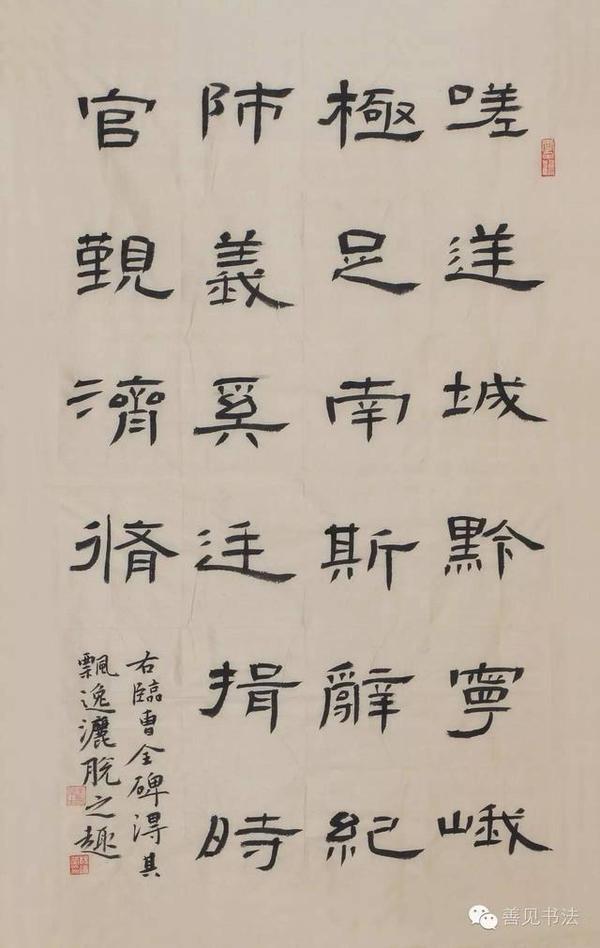 嗟逆城黔寧峨
極足南斯辭紀
師義奚廷揖時
官覲濟脩
右臨曹全碑得其
飄逸灑脫之趣
善见书法